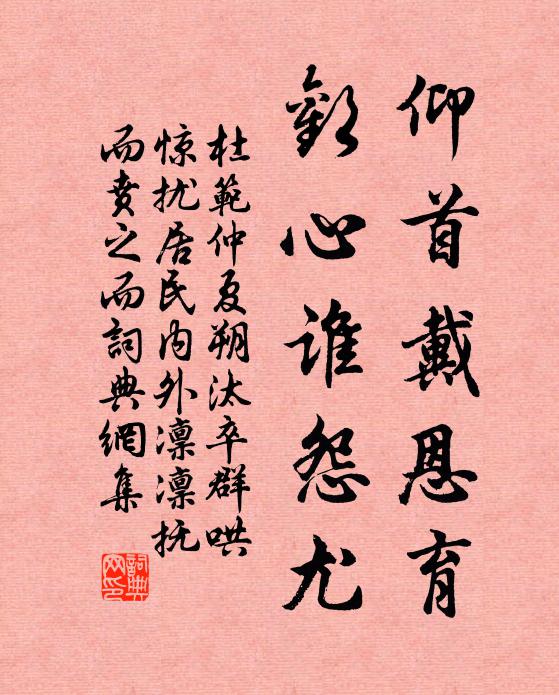 仰首戴恩育
歡心谁怨尤
杜範仲夏朔汰卒群哄
惊扰居民内外凛凛抚
而賁之而詞典網集
詞典
网印